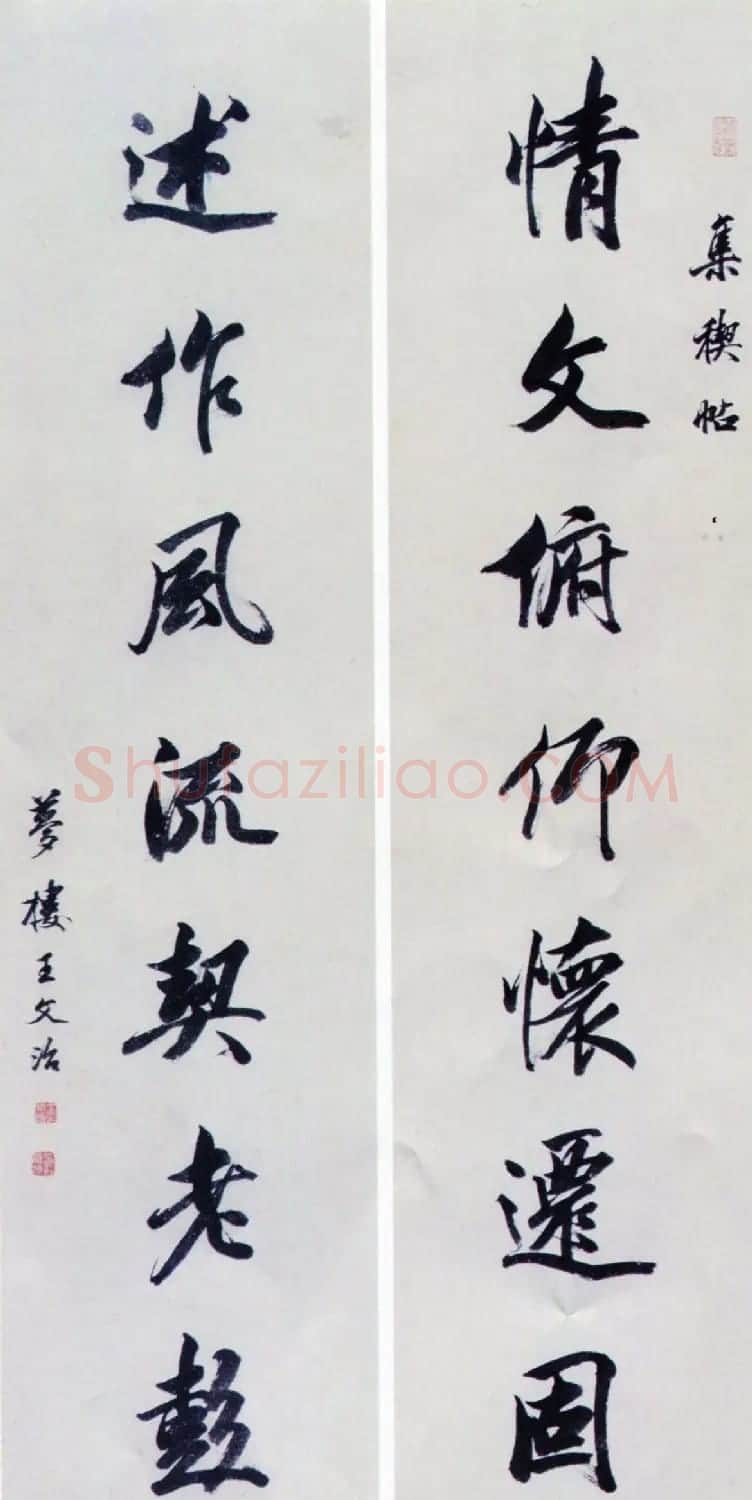 集稧帖
情文俯仰懷遷固
述作風流契老彭
夢樓王文治
Shufaziliao.COM